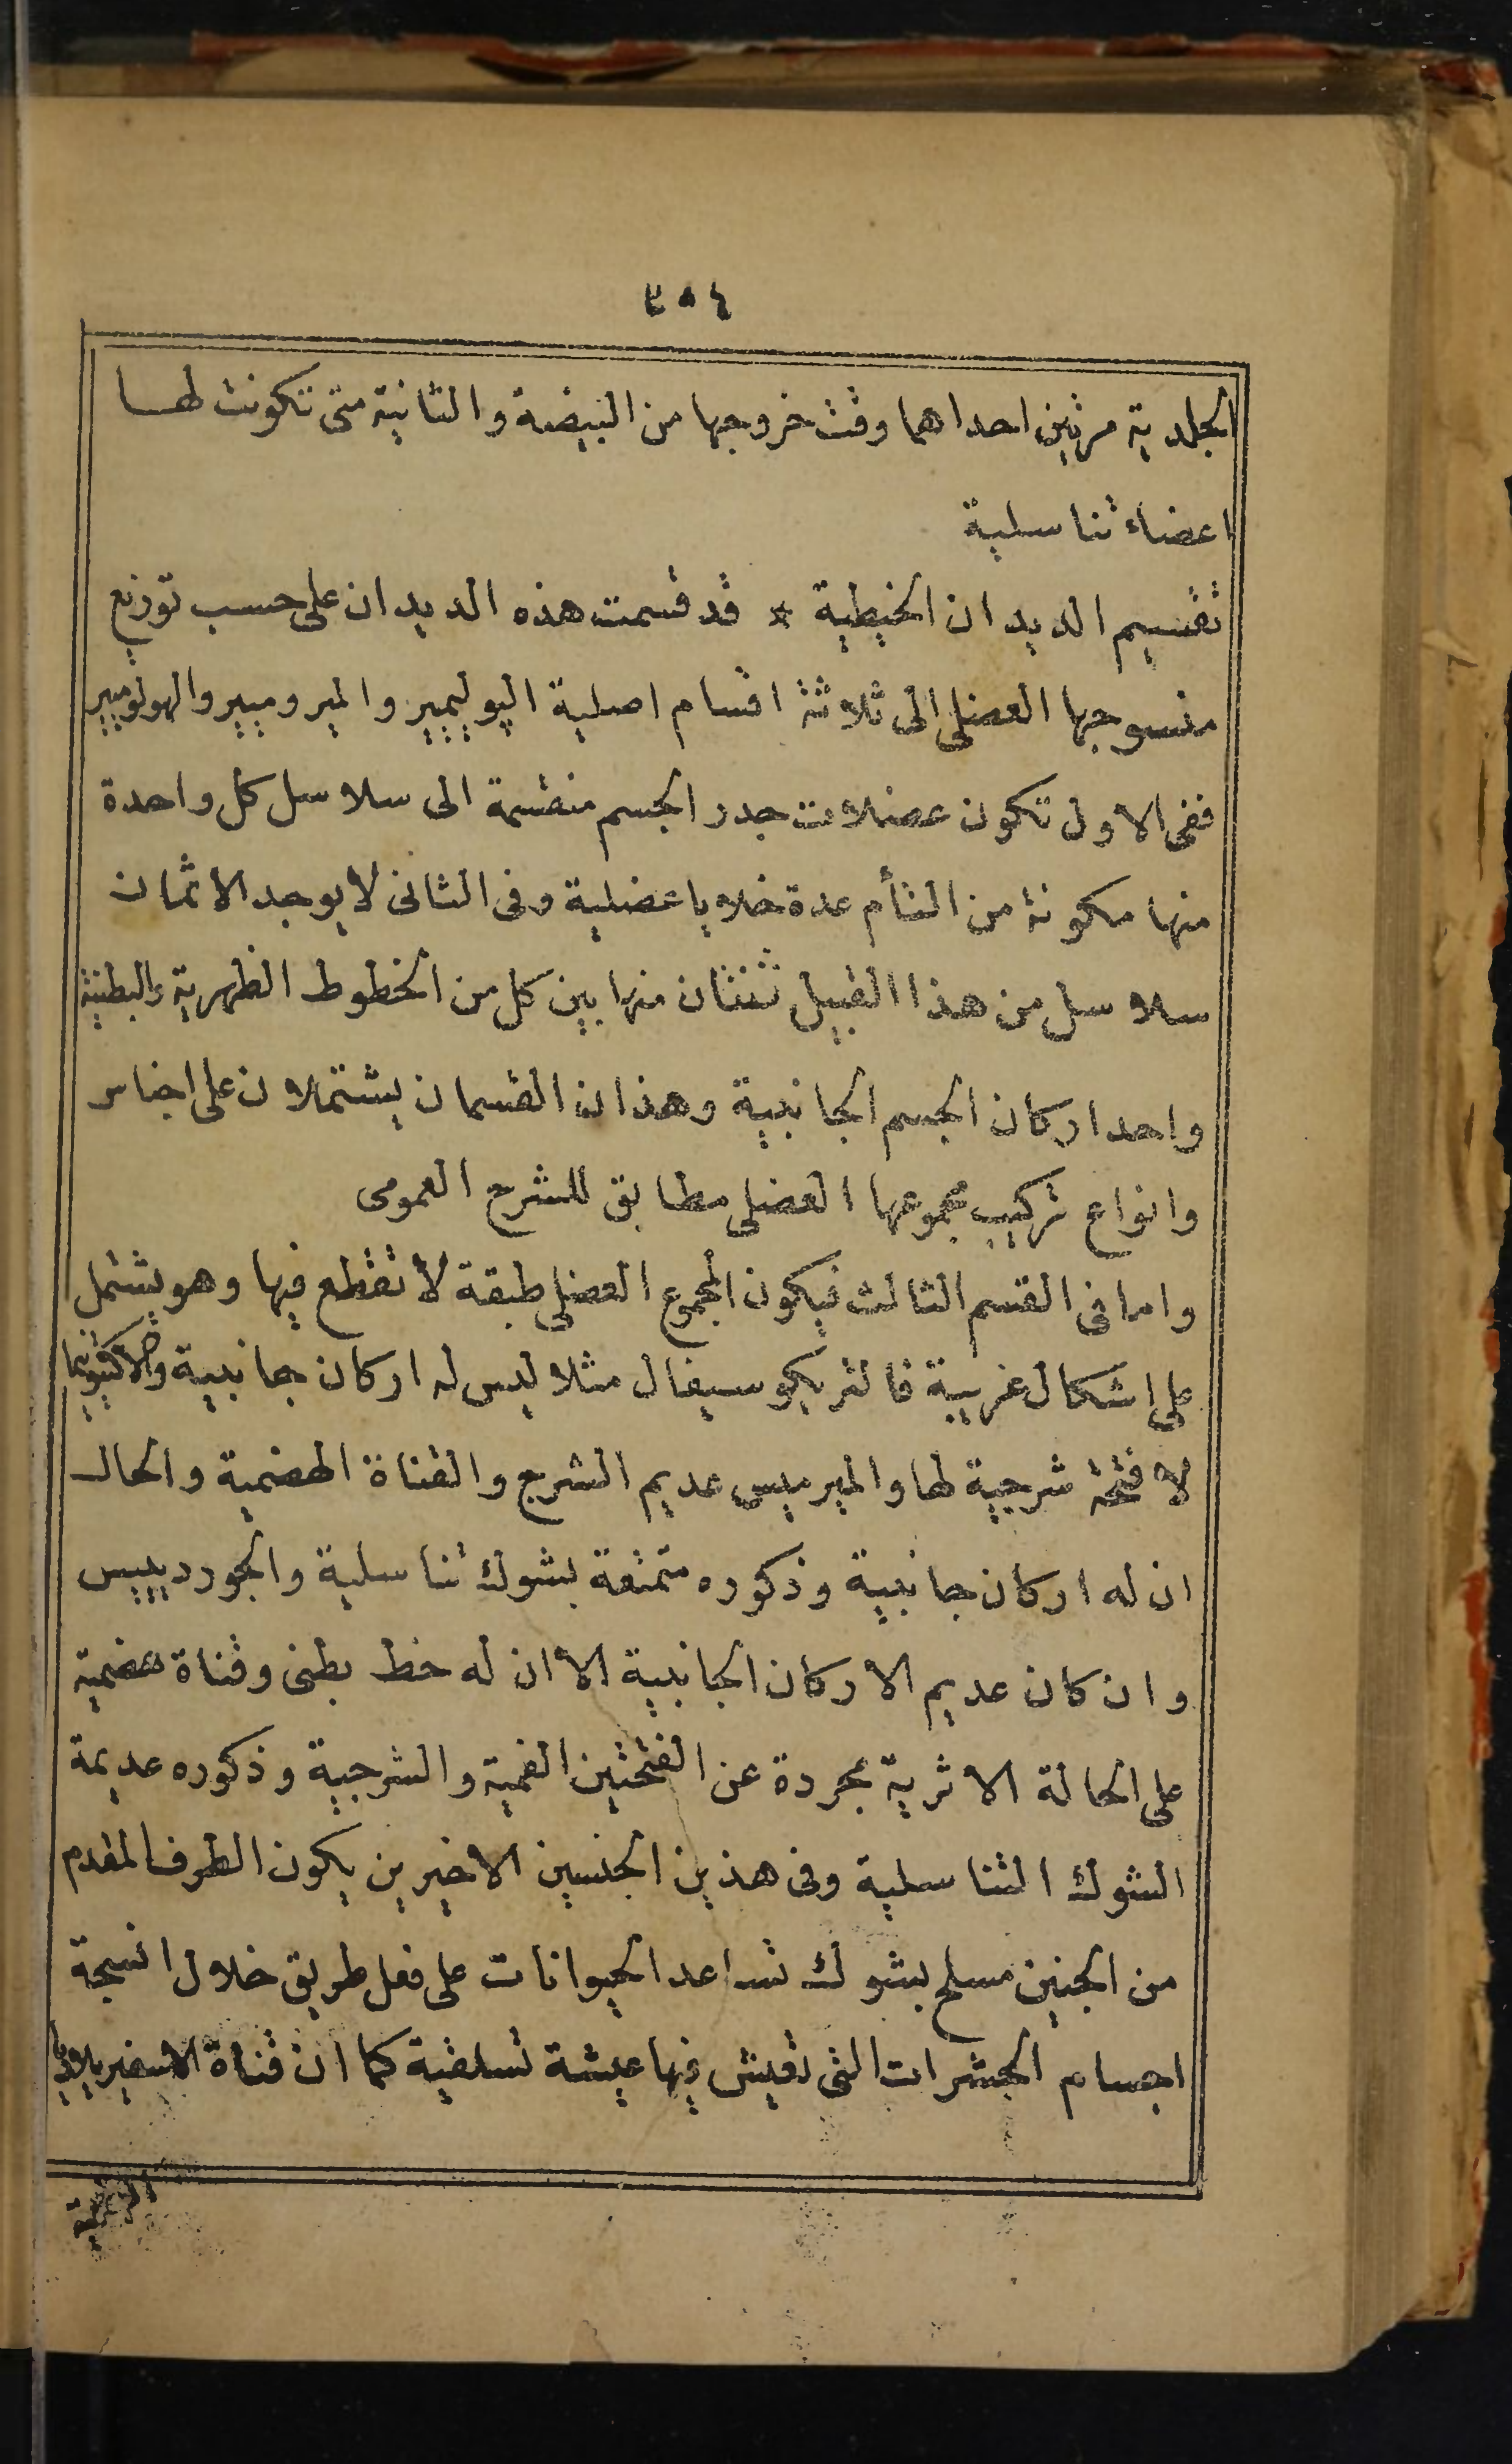 ٣٥٤
الجلدية مرتين احداهما وقت خروجها من البيضة والثانية متى تكونت لها
اعضاء تناسلية
تقسيم الديدان الخيطية * قد قسمت هذه الديدان على حسب توزيع
منسوجها العضلى الى ثلاثة اقسام اصلية اليوليميير والميروميير والهولوميير
ففى الاول تكون عضلات جدر الجسم منقسمة الى سلاسل كل واحدة
منها مكونة من التأم عدة خلايا عضلية وفى الثانى لا يوجد الا ثمان
سلاسل من هذا القبيل ثنتان منها بين كل من الخطوط الظهرية والبطنية
واحد اركان الجسم الجانبية وهذان القسمان يشتملان على اجناس
وانواع تركيب مجموعها العضلى مطابق للشرح العمومى
واما فى القسم الثالث فيكون المجموع العضلى طبقة لا تقطع فيها وهو يشتمل
على اشكال غريبة فالتريكوسيفال مثلا ليس له اركان جانبية
لا فتحة شرجية لها والميرميس عديم الشرج والقناة الهضمية والحال
ان له اركان جانبية وذكوره متمتعة بشوك تناسلية والجوردييس
وان كان عديم الاركان الجانبية الا ان له خط بطنى وقناة هضمية
على الحالة الاثرية مجردة عن الفتحتين الفمية والشرجية وذكوره عديمة
الشوك التناسلية وفى هذين الجنسين الاخيرين يكون الطرف المقدم
من الجنين مسلح بشوك تساعد الحيوانات على فعل طريق خلال انسجة
اجسام الحشرات التى تعيش فيها عيشة تسلقية كما ان قناة